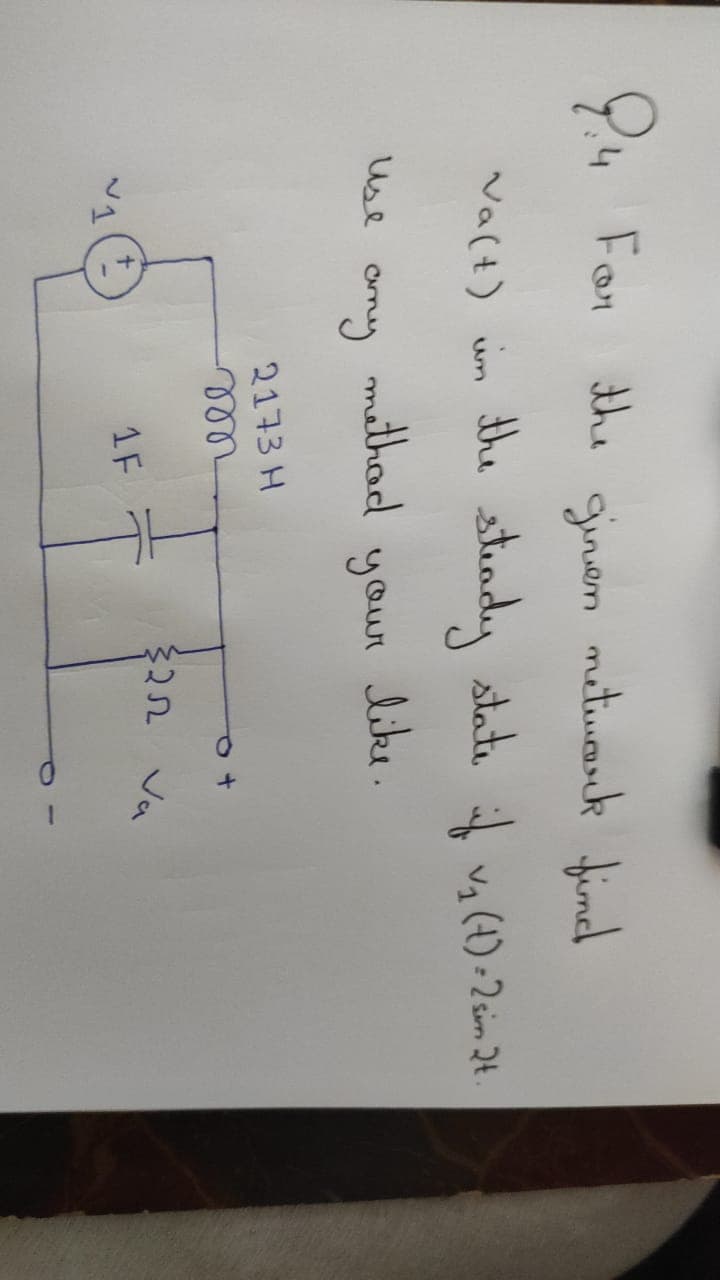 Q.4 For the given network find
va(t) in the steady state if v1(t)=2 sin 2t.
Use any method your like.
2173 H
v1
+
-
1F
2Ω
Va
+
-